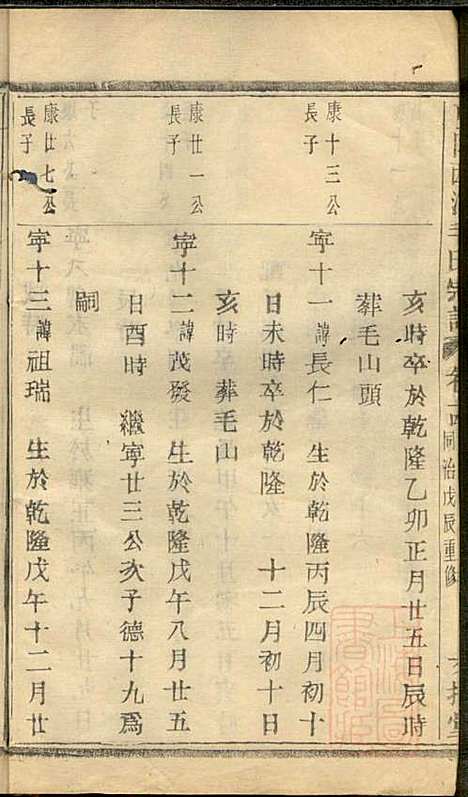 宗譜 卷 四 同治戊辰重修
亥時卒於乾隆乙卯正月廿五日辰時
葬毛山頭
康十三公長子
寧十一 諱長仁 生於乾隆丙辰四月初十
日未時卒於乾隆 十二月初十日
亥時葬毛山
康廿一公長子
寧十二 諱茂發 生於乾隆戊午八月廿五
日酉時 繼寧廿三公次子德十九為
嗣
康廿七公長子
寧十三 諱祖瑞 生於乾隆戊午十二月廿